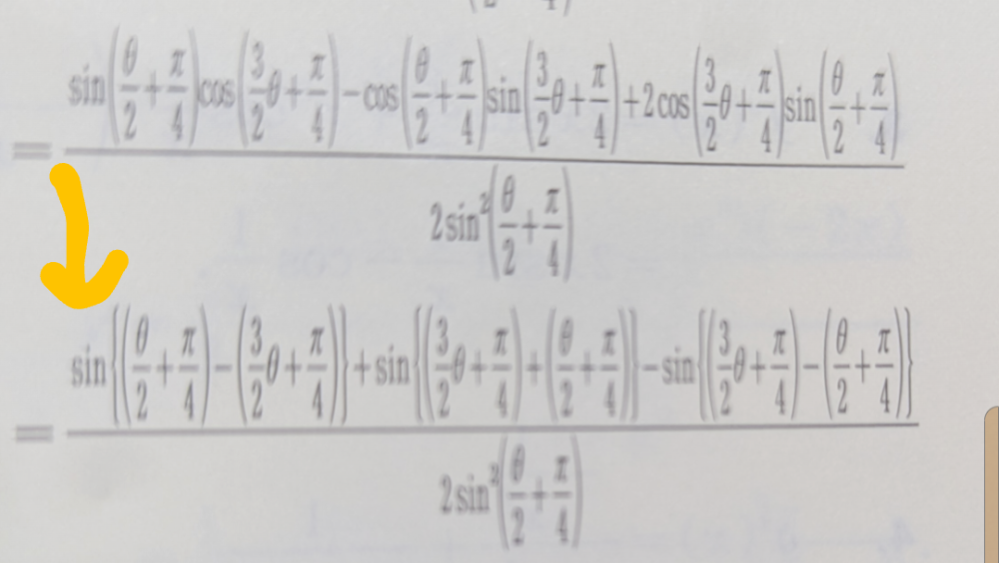 = \frac{\sin\left(\frac{θ}{2}+\frac{π}{4}\right)\cos\left(\frac{3}{2}θ+\frac{π}{4}\right)-\cos\left(\frac{θ}{2}+\frac{π}{4}\right)\sin\left(\frac{3}{2}θ+\frac{π}{4}\right)+2\cos\left(\frac{3}{2}θ+\frac{π}{4}\right)\sin\left(\frac{θ}{2}+\frac{π}{4}\right)}{2\sin^2\left(\frac{θ}{2}+\frac{π}{4}\right)}
= \frac{\sin\left\{\left(\frac{θ}{2}+\frac{π}{4}\right)-\left(\frac{3}{2}θ+\frac{π}{4}\right)\right\}+\sin\left\{\left(\frac{3}{2}θ+\frac{π}{4}\right)+\left(\frac{θ}{2}+\frac{π}{4}\right)\right\}-\sin\left\{\left(\frac{3}{2}θ+\frac{π}{4}\right)-\left(\frac{θ}{2}+\frac{π}{4}\right)\right\}}{2\sin^2\left(\frac{θ}{2}+\frac{π}{4}\right)}